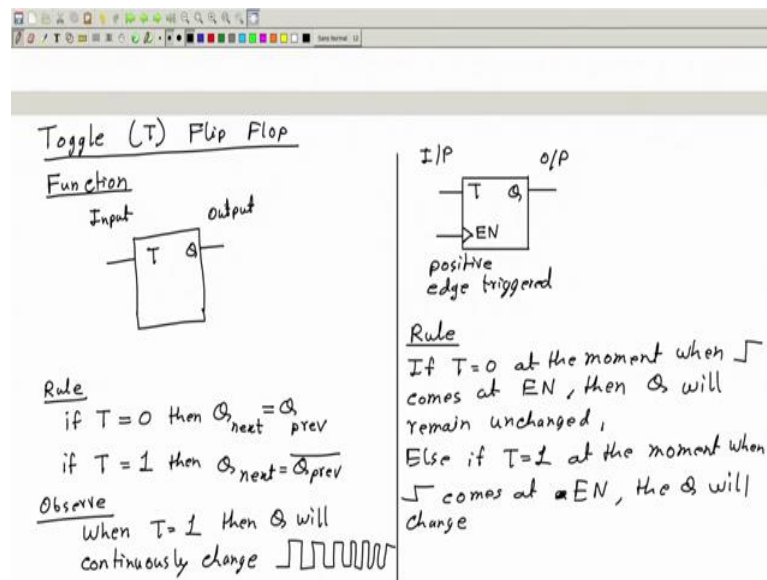 Toggle (T) Flip Flop
Function
Input Output
T Q
Rule
if T = 0 then Q next = Q prev
if T = 1 then Q next = Q̅ prev
Observe
When T= 1 then Q will
continuously change
I/P O/P
T Q
EN
positive
edge triggered
Rule
If T=0 at the moment when
comes at EN, then Q will
remain unchanged,
Else if T=1 at the moment when
comes at EN, the Q will
change